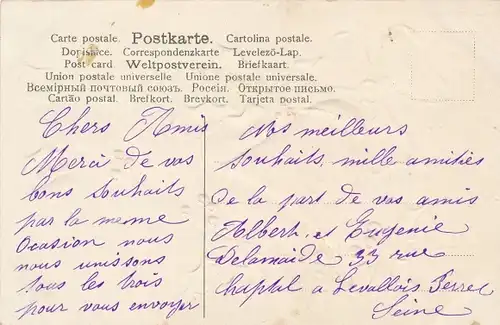 Carte postale. Postkarte. Cartolina postale.
Dopisnice. Correspondenzkarte Levelező-Lap.
Post card Weltpostverein. Briefkaart.
Union postale universelle Unione postale universale.
Всемірный почтовый союзъ. Россія. Открытое письмо.
Cartão postal. Brefkort. Brevkort. Tarjeta postal.
Chers Amis
Merci de vos
bons souhaits
par la meme
Ocasion nous
nous unissons
tous les trois
pour vous envoyer
Nos meilleurs
souhaits, mille amitiés
de la part de vos amis
Albert, et Eugenie
Delamaide 33 rue
chaptal a Levallois Perret
Seine